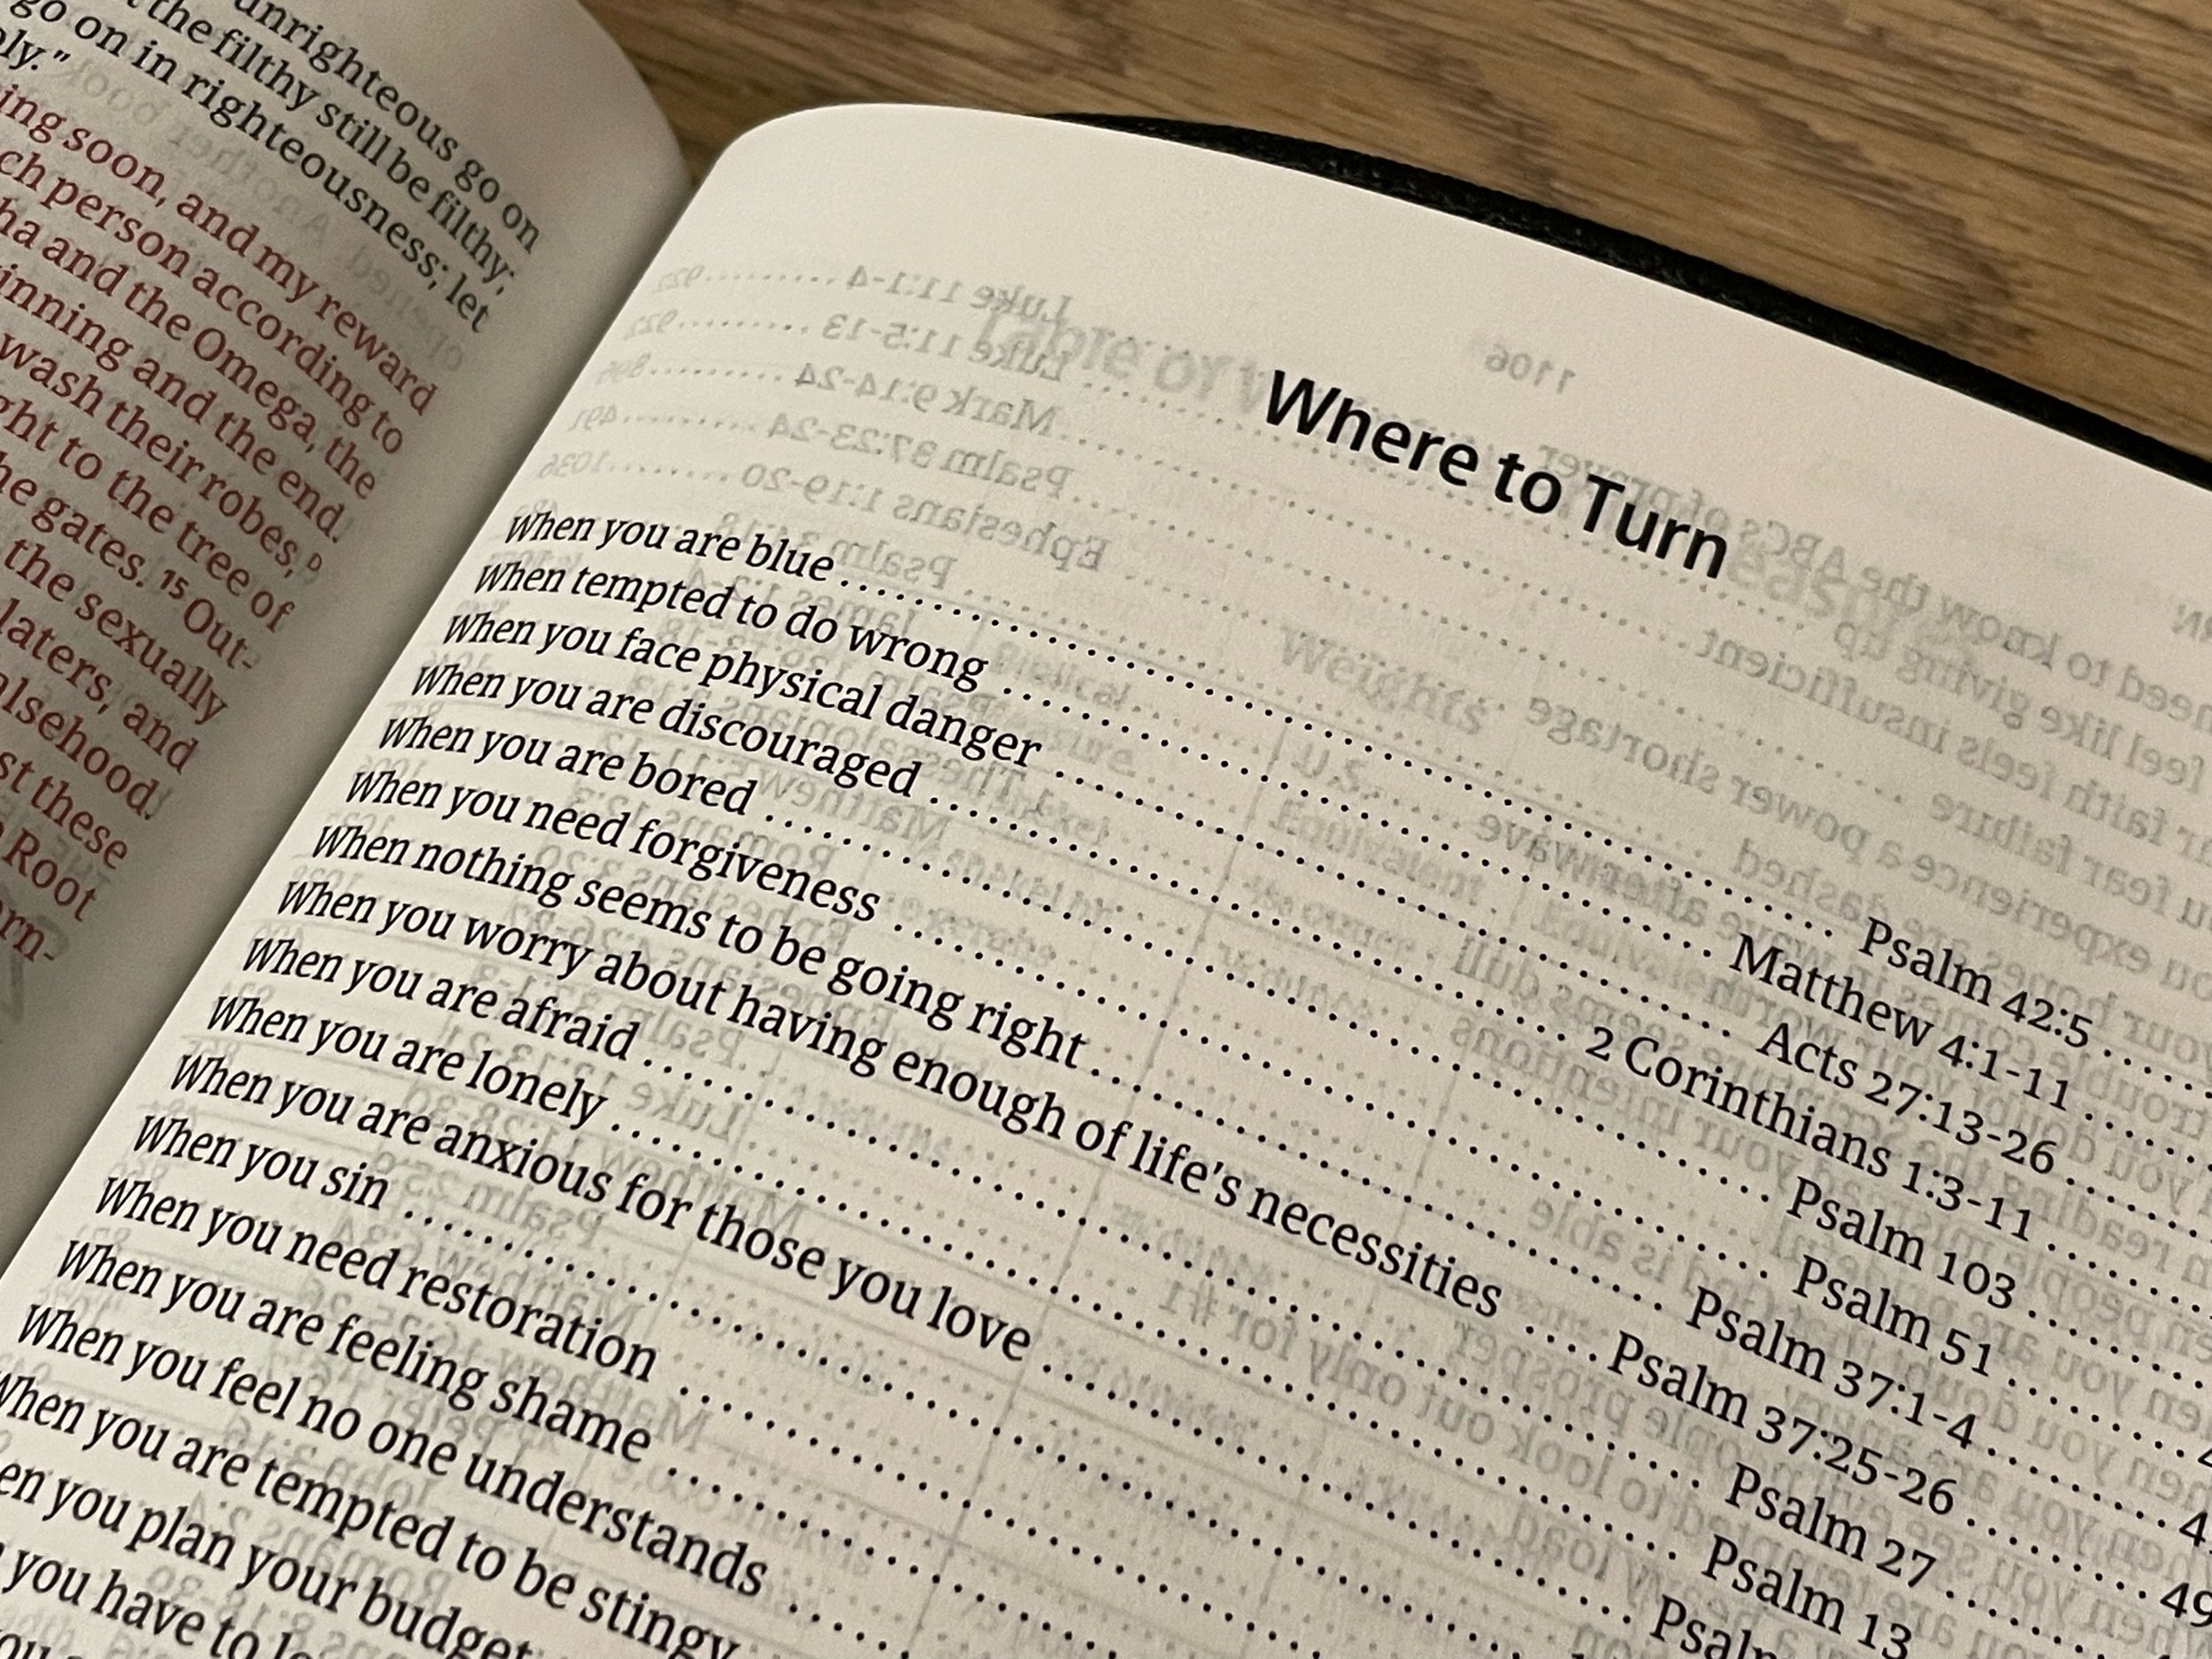 unrighteous go on
the filthy still be filthy;
go on in righteousness; let
ly."
ing soon, and my reward
ch person according to
ha and the Omega, the
inning and the end.
wash their robes,ᴰ
ght to the tree of
he gates. ¹⁵ Out-
the sexually
laters, and
alsehood.
st these
Root
rn-
Where to Turn
When you are blue .......... Psalm 42:5 ......
When tempted to do wrong .......... Matthew 4:1-11 ......
When you face physical danger .......... Acts 27:13-26 ......
When you are discouraged .......... 2 Corinthians 1:3-11 ......
When you are bored .......... Psalm 103 ......
When you need forgiveness .......... Psalm 51 ......
When nothing seems to be going right .......... Psalm 37:1-4 ......
When you worry about having enough of life's necessities ..... Psalm 37:25-26 ...... 49
When you are afraid .......... Psalm 27 ......
When you are lonely .......... Psalm 13
When you are anxious for those you love .......... Psalm
When you sin ..........
When you need restoration ..........
When you are feeling shame ..........
When you feel no one understands ..........
When you are tempted to be stingy
en you plan your budget
you have to